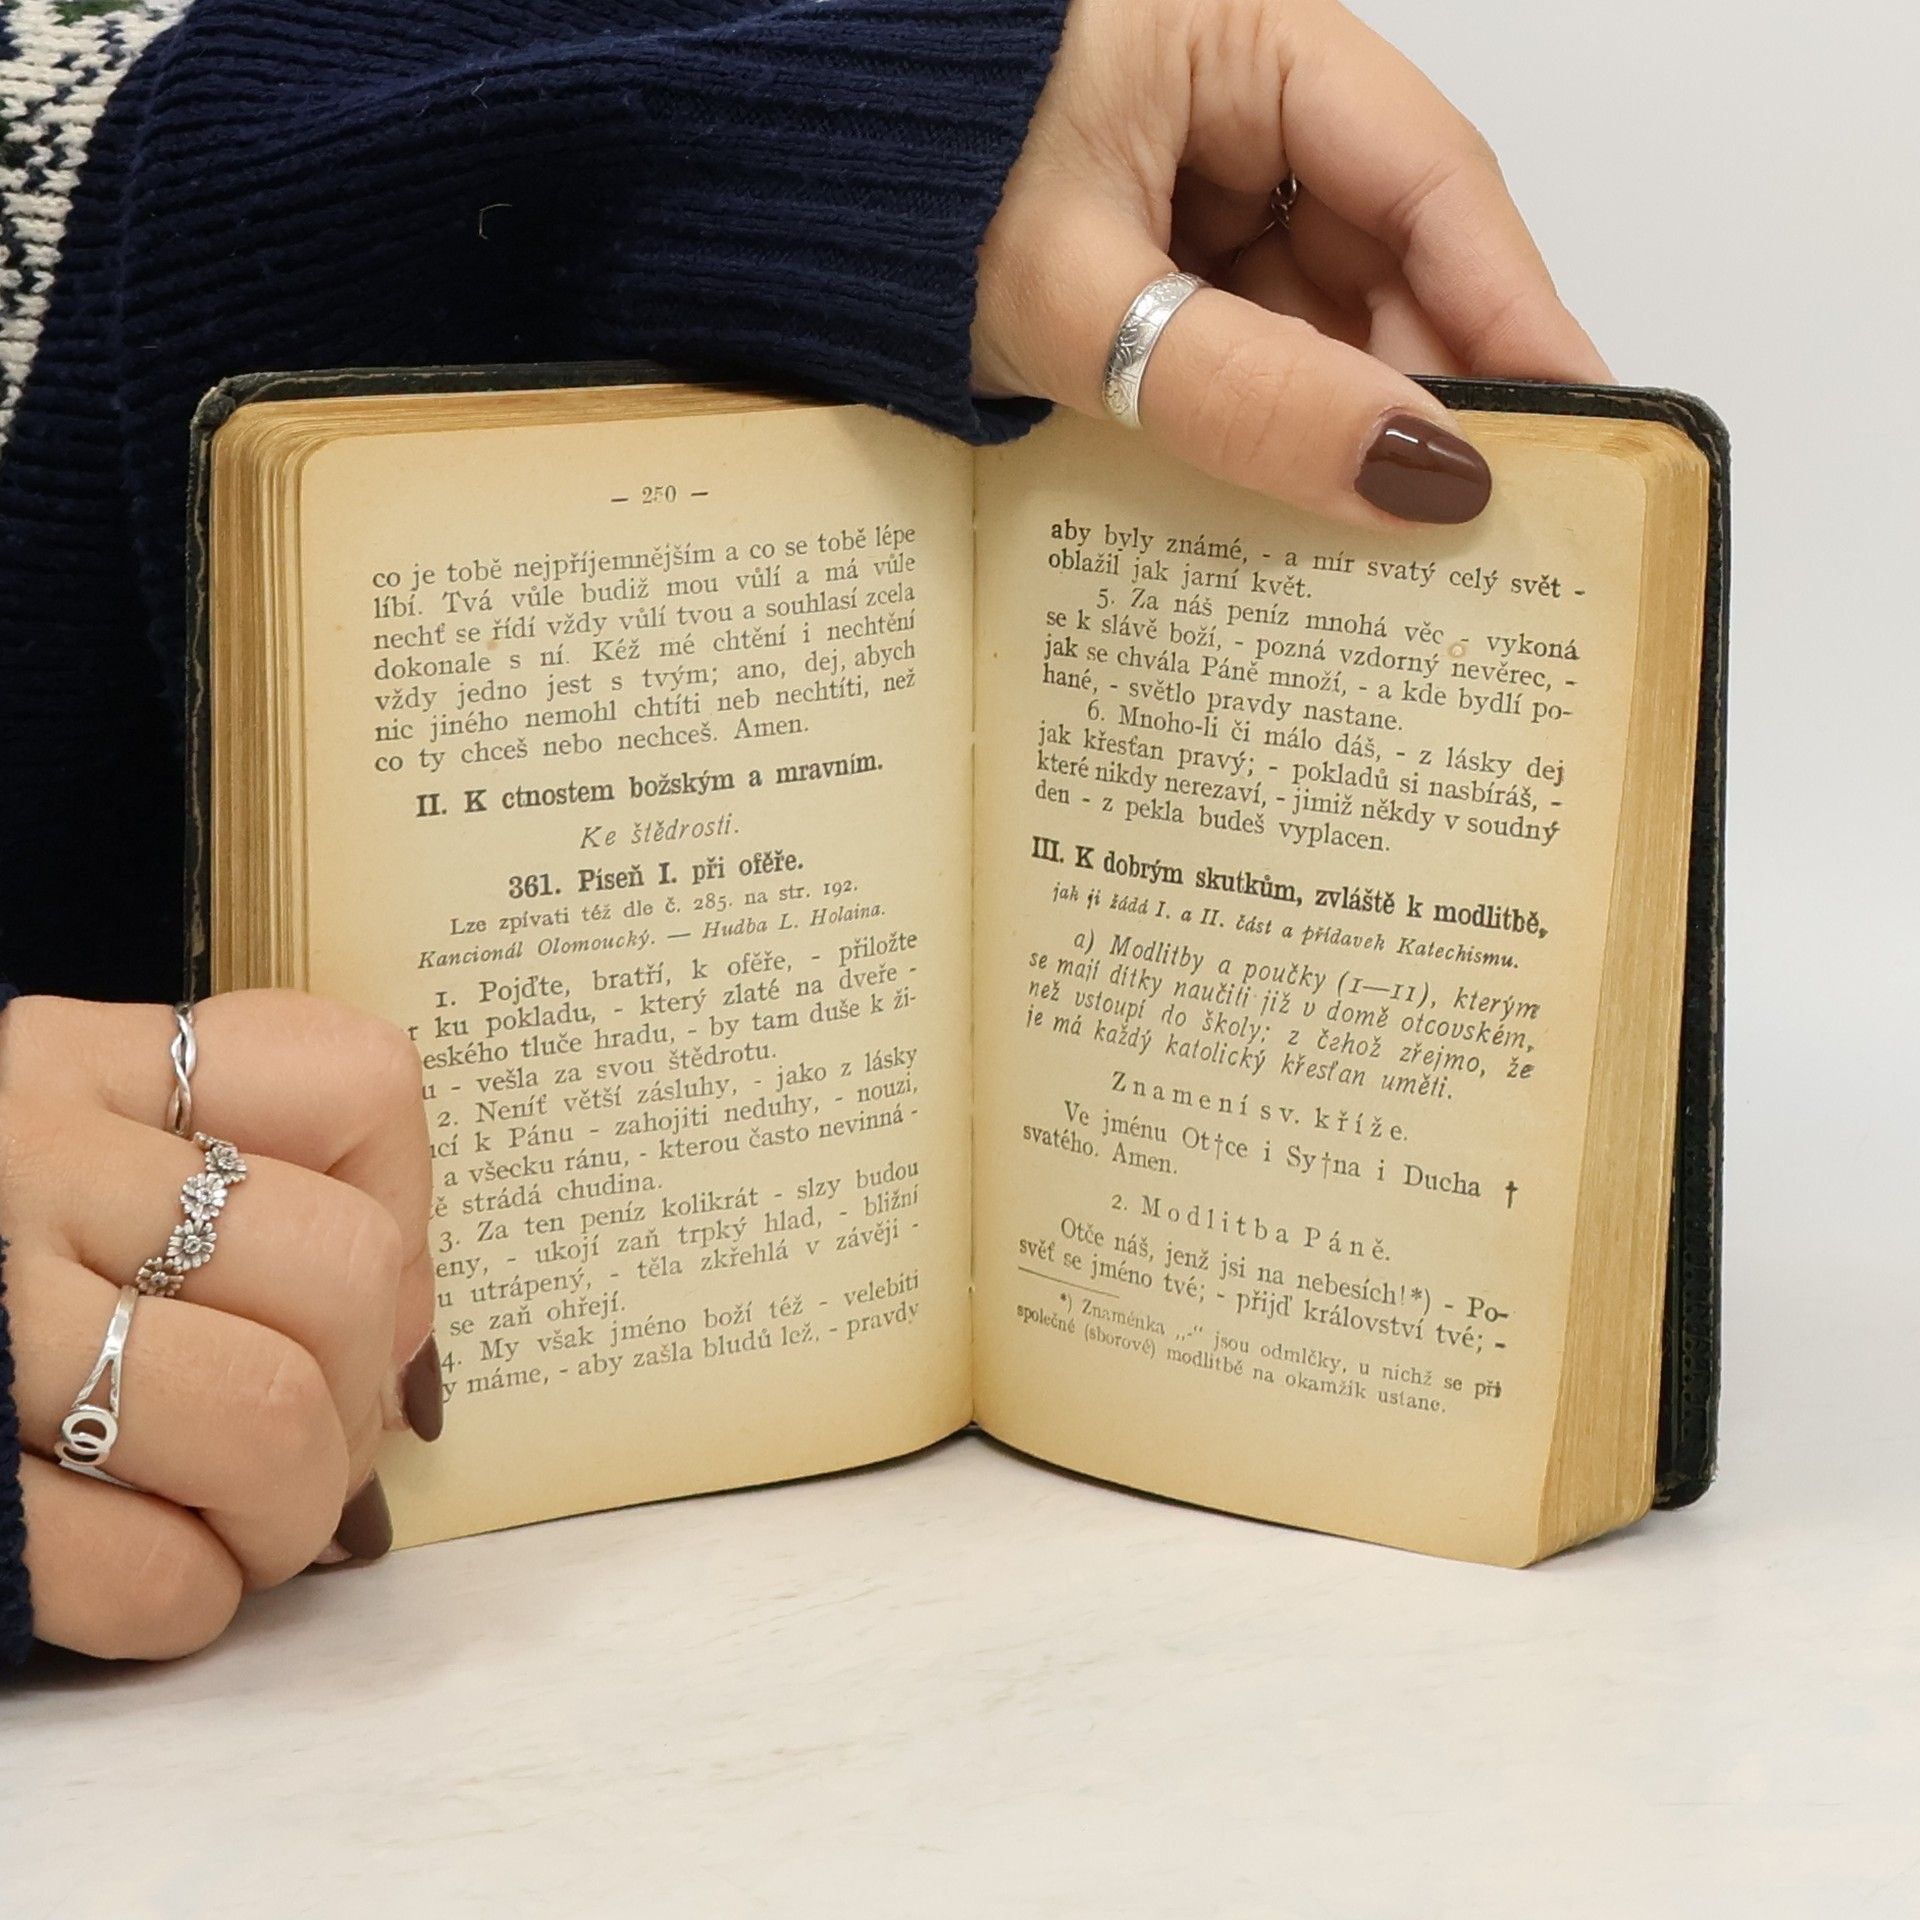 — 250 —
co je tobě nejpříjemnějším a co se tobě lépe
líbí. Tvá vůle budiž mou vůlí a má vůle
nechť se řídí vždy vůlí tvou a souhlasí zcela
dokonale s ní. Kéž mé chtění i nechtění
vždy jedno jest s tvým; ano, dej, abych
nic jiného nemohl chtíti neb nechtíti, než
co ty chceš nebo nechceš. Amen.
II. K ctnostem božským a mravním.
Ke štědrosti.
361. Píseň I. při oféře.
Lze zpívati též dle č. 285. na str. 192.
Kancionál Olomoucký. — Hudba L. Holaina.
1. Pojďte, bratří, k oféře, - přiložte
ku pokladu, - který zlaté na dveře -
tluče hradu, - by tam duše k ži-
- vešla za svou štědrotu.
2. Neníť větší zásluhy, - jako z lásky
k Pánu - zahojiti neduhy, - nouzi,
a všecku ránu, - kterou často nevinná -
strádá chudina.
3. Za ten peníz kolikrát - slzy budou
- ukojí zaň trpký hlad, - bližní
utrápený, - těla zkřehlá v závěji -
se zaň ohřejí.
4. My však jméno boží též - velebiti
máme, - aby zašla bludů lež, - pravdy
aby byly známé, - a mír svatý celý svět -
oblažil jak jarní květ.
5. Za náš peníz mnohá věc - vykoná
se k slávě boží, - pozná vzdorný nevěrec, -
jak se chvála Páně množí, - a kde bydlí po-
hané, - světlo pravdy nastane.
6. Mnoho-li či málo dáš, - z lásky dej
jak křesťan pravý; - pokladů si nasbíráš, -
které nikdy nerezaví, - jimiž někdy v soudný
den - z pekla budeš vyplacen.
III. K dobrým skutkům, zvláště k modlitbě,
jak ji žádá I. a II. část a přídavek Katechismu.
a) Modlitby a poučky (1—11), kterým
se mají dítky naučiti již v domě otcovském,
než vstoupí do školy; z čehož zřejmo, že
je má každý katolický křesťan uměti.
Znamení sv. kříže.
Ve jménu Ot†ce i Sy†na i Ducha †
svatého. Amen.
2. Modlitba Páně.
Otče náš, jenž jsi na nebesích!*) - Po-
svěť se jméno tvé; - přijď království tvé; -
*) Znaménka „-“ jsou odmlčky, u nichž se při
společné (sborové) modlitbě na okamžik ustane.